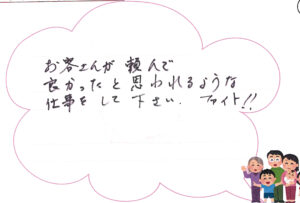 お客さんが 頼んで
良かったと思われるような
仕事をして下さい. ファイト!!